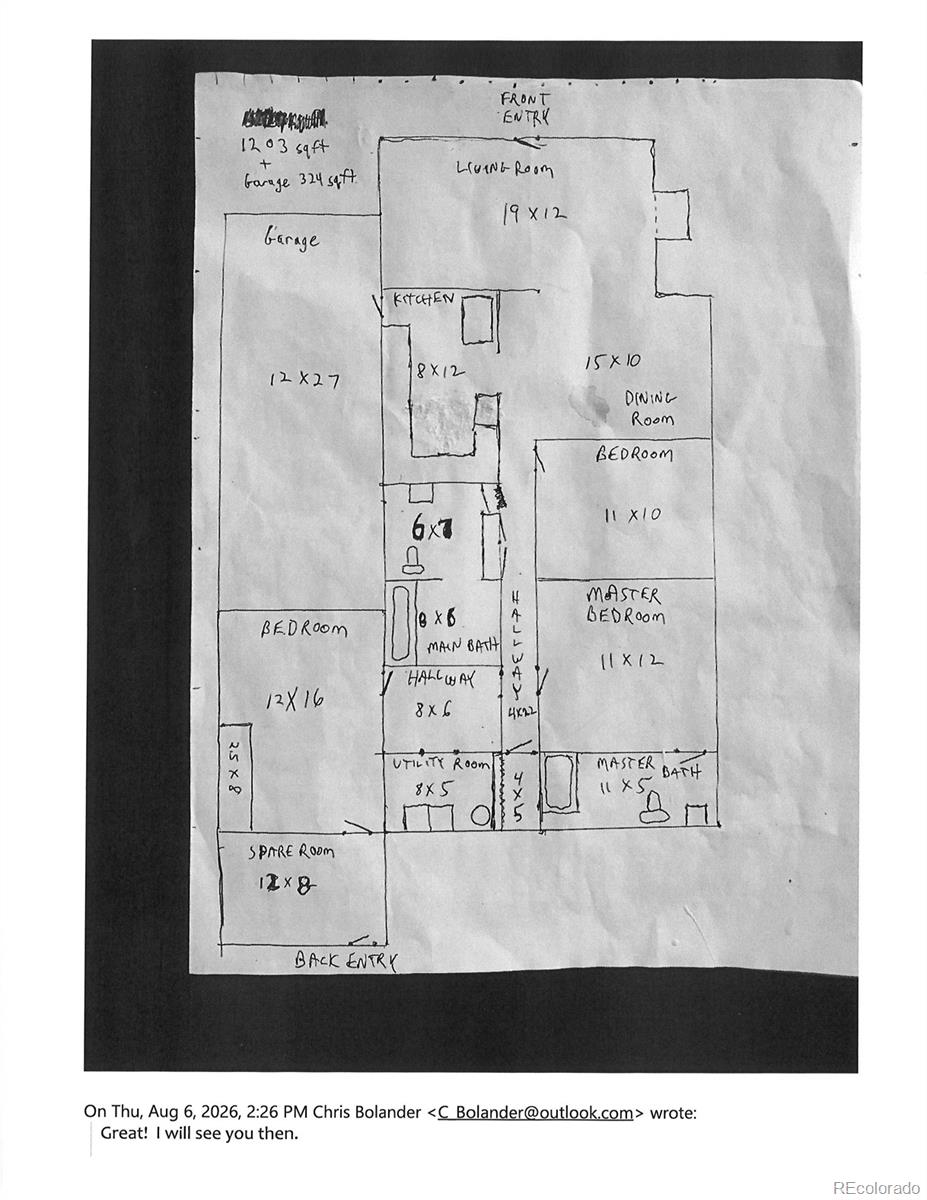 FRONT
ENTRY
1203 sqft
+
Garage 324 sqft.
LIVING ROOM
19 X 12
Garage
KITCHEN
8 X 12
15 X 10
12 X 27
DINING
ROOM
BEDROOM
11 X 10
6 X 7
HALLWAY
4X22
MASTER
BEDROOM
11 X 12
BEDROOM
12 X 16
8 X 6
MAIN BATH
HALLWAY
8 X 6
2.5 X 8
UTILITY ROOM
8 X 5
4 X 5
MASTER BATH
11 X 5
SPARE ROOM
12 X 8
BACK ENTRY
On Thu, Aug 6, 2026, 2:26 PM Chris Bolander <C_Bolander@outlook.com> wrote:
Great! I will see you then.
REcolorado